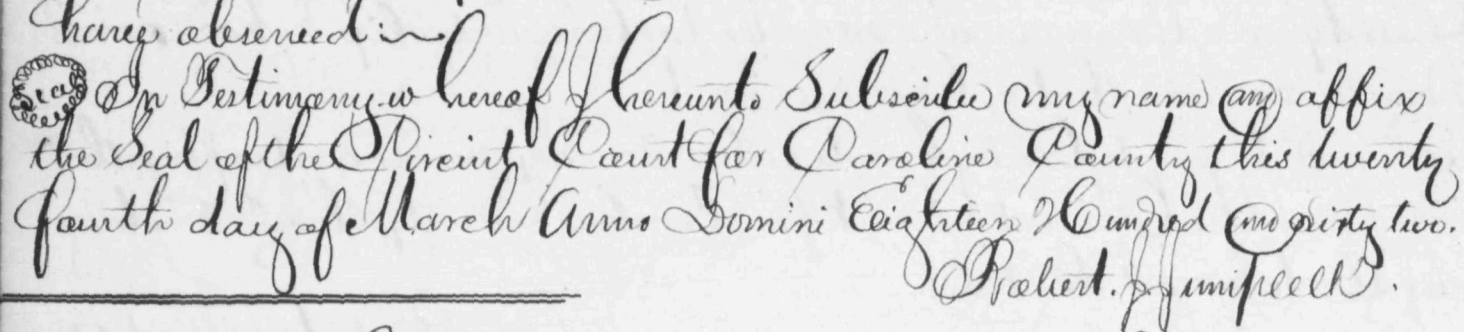 have observed :~
Seal In Testimony whereof I hereunto Subscribe my name and affix
the Seal of the Circuit Court for Caroline County this twenty
fourth day of March Anno Domini Eighteen Hundred and sixty two.
Robert.